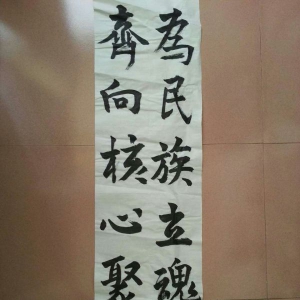 為民族立魂
齊向核心聚